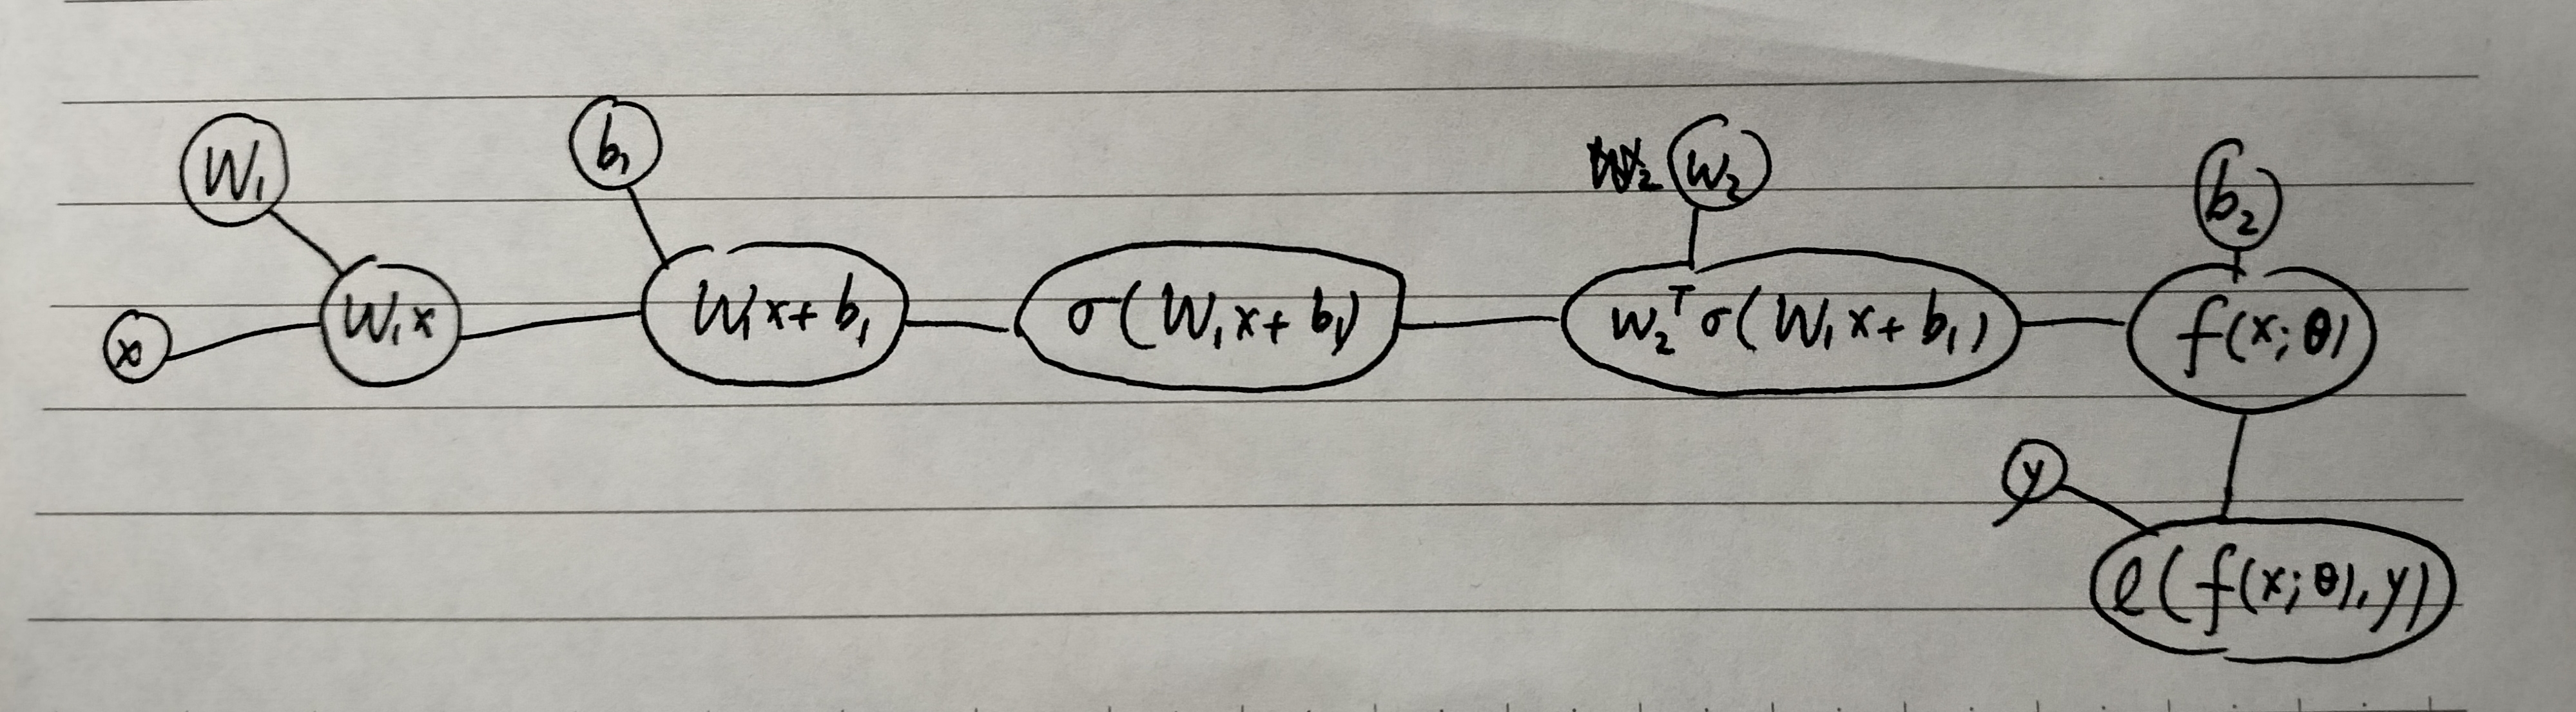 W₁ b₁ w₂ b₂
x W₁x W₁x+b₁ σ(W₁x+b₁) w₂ᵀσ(W₁x+b₁) f(x;θ)
y
ℓ(f(x;θ),y)